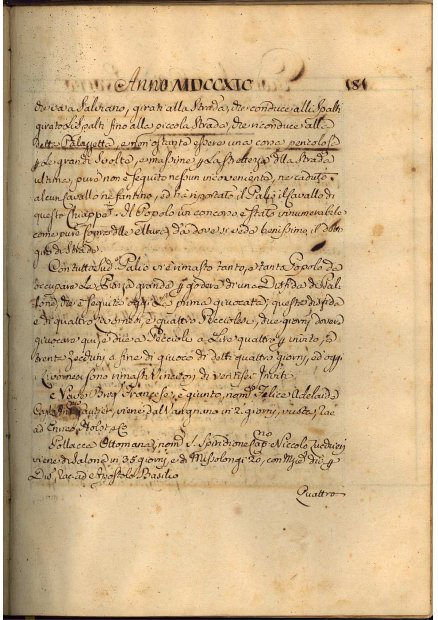 Anno MDCCXC 181
di va a Salviano, girati alla Strada, che conduce alli Spalti
girato li Spalti fino alla piccola Strada, che riconduce alla
detta Palazzetta, e non ostante essere una corsa pericolosa
p le grandi Svolte, e massime p la Strettezza della Strada
ultima, pure non è seguito nessun inconveniente, ne caduto
alcun Cavallo ne fantino, ed ha riportato il Palio il Cavallo di
questo Chiappa. Il Popolo un concorso è stato innumerabile
come pure sopra delle alture, da dove si vede benissimo, il detto
giro di Strade.
Con tutto Sud.° Palio vi è rimasto tanto, e tanta Popolo da
occupare la Piazza grande p godere di una Disfida di Pal-
lone, che è seguita oggi la prima giuocata, questa disfida
è di quattro Livornesi, e quattro Pecciolesi, due giorni dover
giuocare qui, e due a Peccioli a Lire quattro p invito, ed
trenta Zecchini a fine di giuoco di detti quattro giorni, ed oggi
Livornesi sono rimasti Vincitori di ventisei Inviti.
Nave Francese, è giunta, nom.ª Felice Adelaide
Cap.º viene dal in 2. giorni, vuota, Rac.
ad Enrico, Holot, e C.
Pollacca Ottomana, nom.ª S. Spiridione Cap.º Niccolo
viene di Salona in 35 giorni, e di Missolongi 20, con
Rac. ad Apostolo Basilio
Quattro